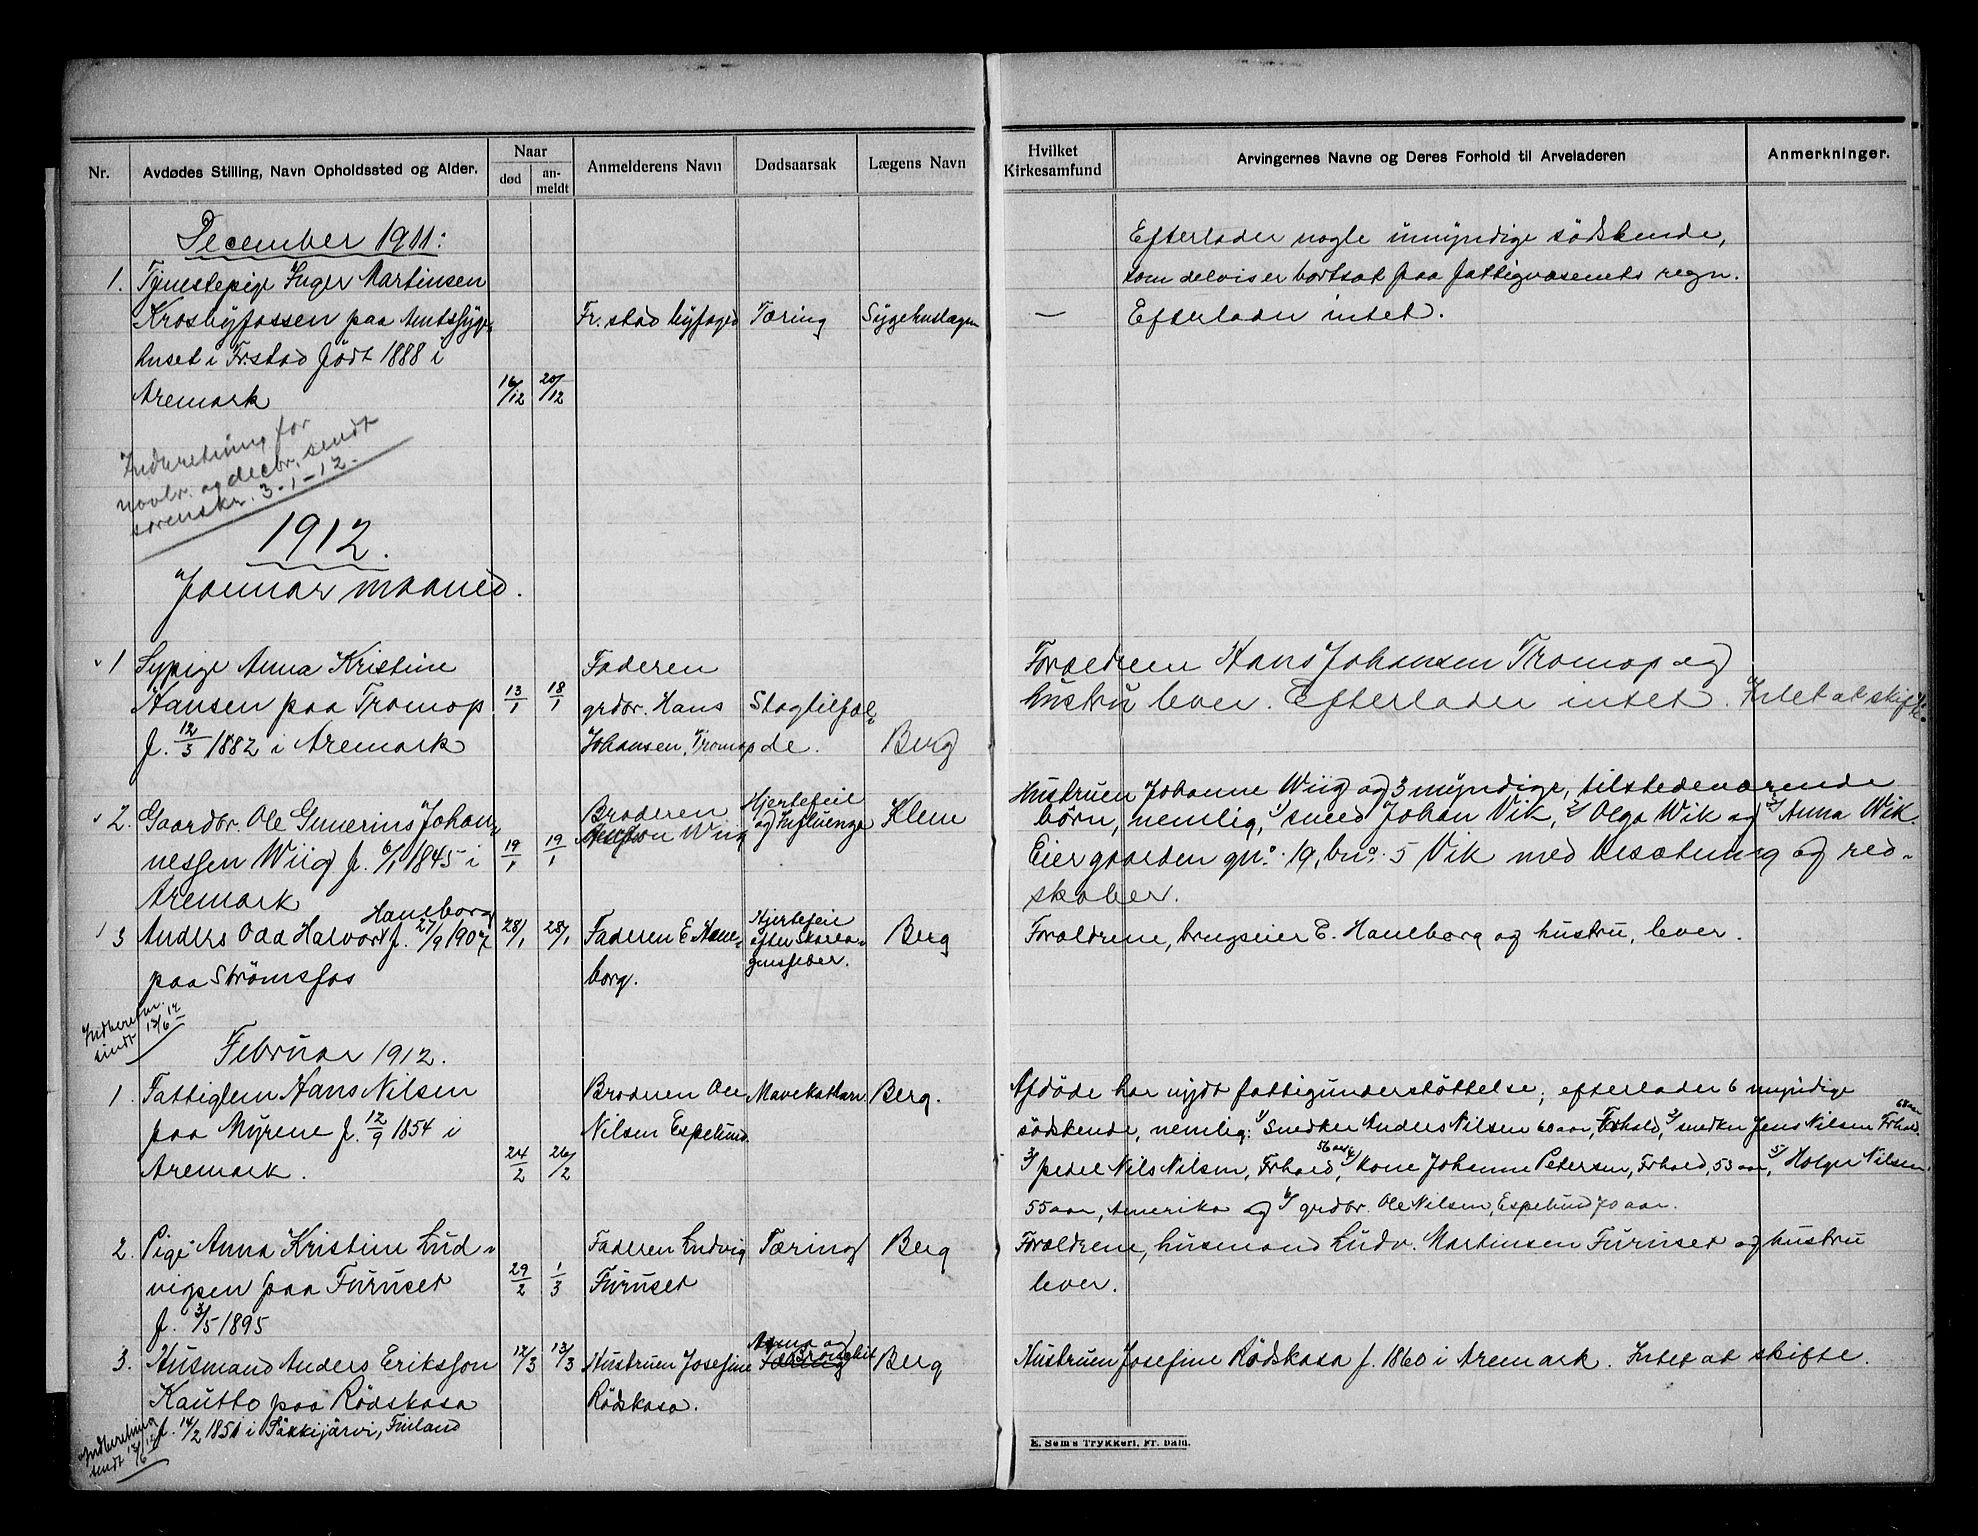 Nr.
Avdødes Stilling, Navn Opholdssted og Alder.
Naar
død
an-
meldt
Anmelderens Navn
Dødsaarsak
Lægens Navn
Hvilket
Kirkesamfund
Arvingernes Navne og Deres Forhold til Arveladeren
Anmerkninger.
December 1911:
1. Tjenestepige Inger Martinsen
Krosbyfossen paa Amtssyge-
huset i Fr.stad født 1888 i
Aremark
16/12 20/12
Fr.stad byfoged
Tæring
Sygehuslægen
—
Efterlader nogle umyndige sødskende,
som delvis er bortsat paa fattigvæsenets regn.
Efterlader intet.
Indberetning for
novbr. og decbr. sendt
sorenskr. 3-1-12.
1912.
Januar maaned.
1 Sypige Anna Kristine
Hansen paa Tromop
f. 12/3 1882 i Aremark
13/1 18/1
Faderen
grdbr. Hans
Johansen, Tromop
Slagtilfæl-
de.
Berg
Forældrene Hans Johansen Tromop og
hustru lever. Efterlader intet. Intet at skifte.
2. Gaardbr. Ole Gunerius Johan-
nessen Wiig f. 6/1 1845 i
Aremark
19/1 19/1
Broderen
Wiig
Hjertefeil
og Influenza
Klem
Hustruen Johanne Wiig og 3 myndige, tilstedeværende
børn, nemlig, 1/ smed Johan Vik, 2/ Olga Wik og 3/ Anna Wik.
Eier gaarden gn.o 19, bn.o 5 Vik med besætning og red-
skaber.
3 Anders Odd Halvor Haneborg f. 27/9 1907
paa Strømsfos
28/1 28/1
Faderen E. Hane-
borg.
Hjertefeil
efter Skarla-
gensfeber.
Berg
Forældrene, brugseier E. Haneborg og hustru, lever.
Indberetn.
sendt 12/6 12
Februar 1912.
1. Fattiglem Hans Nilsen
paa Myrene f. 12/9 1854 i
Aremark.
24/2 26/2
Broderen Ole
Nilsen Espelund.
Mavekatharr
Berg.
Afdøde har nydt fattigunderstøttelse; efterlader 6 myndige
sødskende, nemlig: 1/ Snedker Anders Nilsen 60 aar, Frhald, 2/ snedker Jens Nilsen Frhald 68 aar
3/ pedel Nils Nilsen, Frhald, 56 aar, 4/ kone Johanne Petersen, Frhald, 53 aar, 5/ Holger Nilsen
55 aar, Amerika og 6/ grdbr. Ole Nilsen, Espelund 70 aar.
2. Pige Anna Kristine Lud-
vigsen paa Furuset
f. 3/5 1895
29/2 1/3
Faderen Ludvig
Furuset
Tæring
Berg
Forældrene, husmand Ludv. Martinsen Furuset og hustru
lever.
3. Husmand Anders Eriksson
Kautto paa Rødskasa
f. 14/2 1851 i Säkkijärvi, Finland
12/3 13/3
Hustruen Josefine
Rødskasa.
Berg
Hustruen Josefine Rødskasa f. 1860 i Aremark. Intet at skifte.
Indberetning
sendt 12/6 12
E. Sem's Trykkeri, Fr.hald.